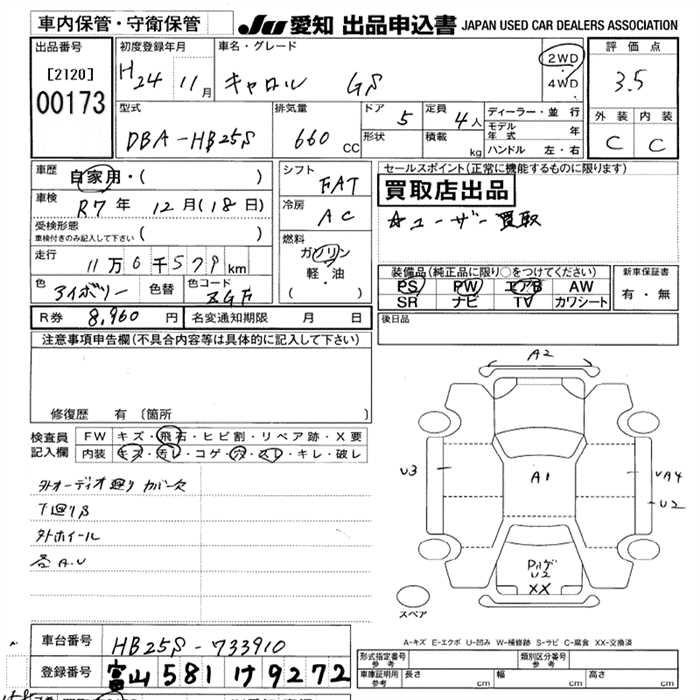 車内保管・守衛保管
JU 愛知 出品申込書 JAPAN USED CAR DEALERS ASSOCIATION
出品番号
[2120]
00173
初度登録年月
H24 11月
車名・グレード
キャロル GS
2WD
4WD
評価点
3.5
外装 内装
C C
型式
DBA-HB25S
排気量
660 CC
ドア 5
形状
定員 4人
積載 kg
ディーラー・並行
モデル年式 年
ハンドル 左・右
車歴 自家用・( )
車検 R7年 12月(18日)
受検形態
車検付きのみ記入して下さい ( )
走行 11万6千579km
色 アイボリー 色替 色コード ZGF
シフト FAT
冷房 AC
燃料
ガソリン
軽・油
( )
セールスポイント(正常に機能するものに限ります)
買取店出品
☆ユーザー買取
装備品(純正品に限り○をつけてください)
PS PW エアB AW
SR ナビ TV カワシート
新車保証書
有・無
R券 8,960円 名変通知期限 月 日
後日品
注意事項申告欄(不具合内容等は具体的に記入して下さい)
修復歴 有 〔箇所 〕
検査員記入欄
FW キズ・飛石・ヒビ割・リペア跡・X要
内装 キズ・汚レ・コゲ・穴・スレ・キレ・破レ
外オーディオ廻りカバー欠
下廻りS
外ホイール
各A.U
A2
U3
A1
UA4
U2
U2
XX
スペア
A-キズ E-エクボ U-凹み W-補修跡 S-サビ C-腐食 XX-交換済
車台番号 HB25S-733910
登録番号 富山 581 け 9272
形式指定番号 参考 類別区分番号 参考
車庫証明用 参考 長さ cm 幅 cm 高さ cm